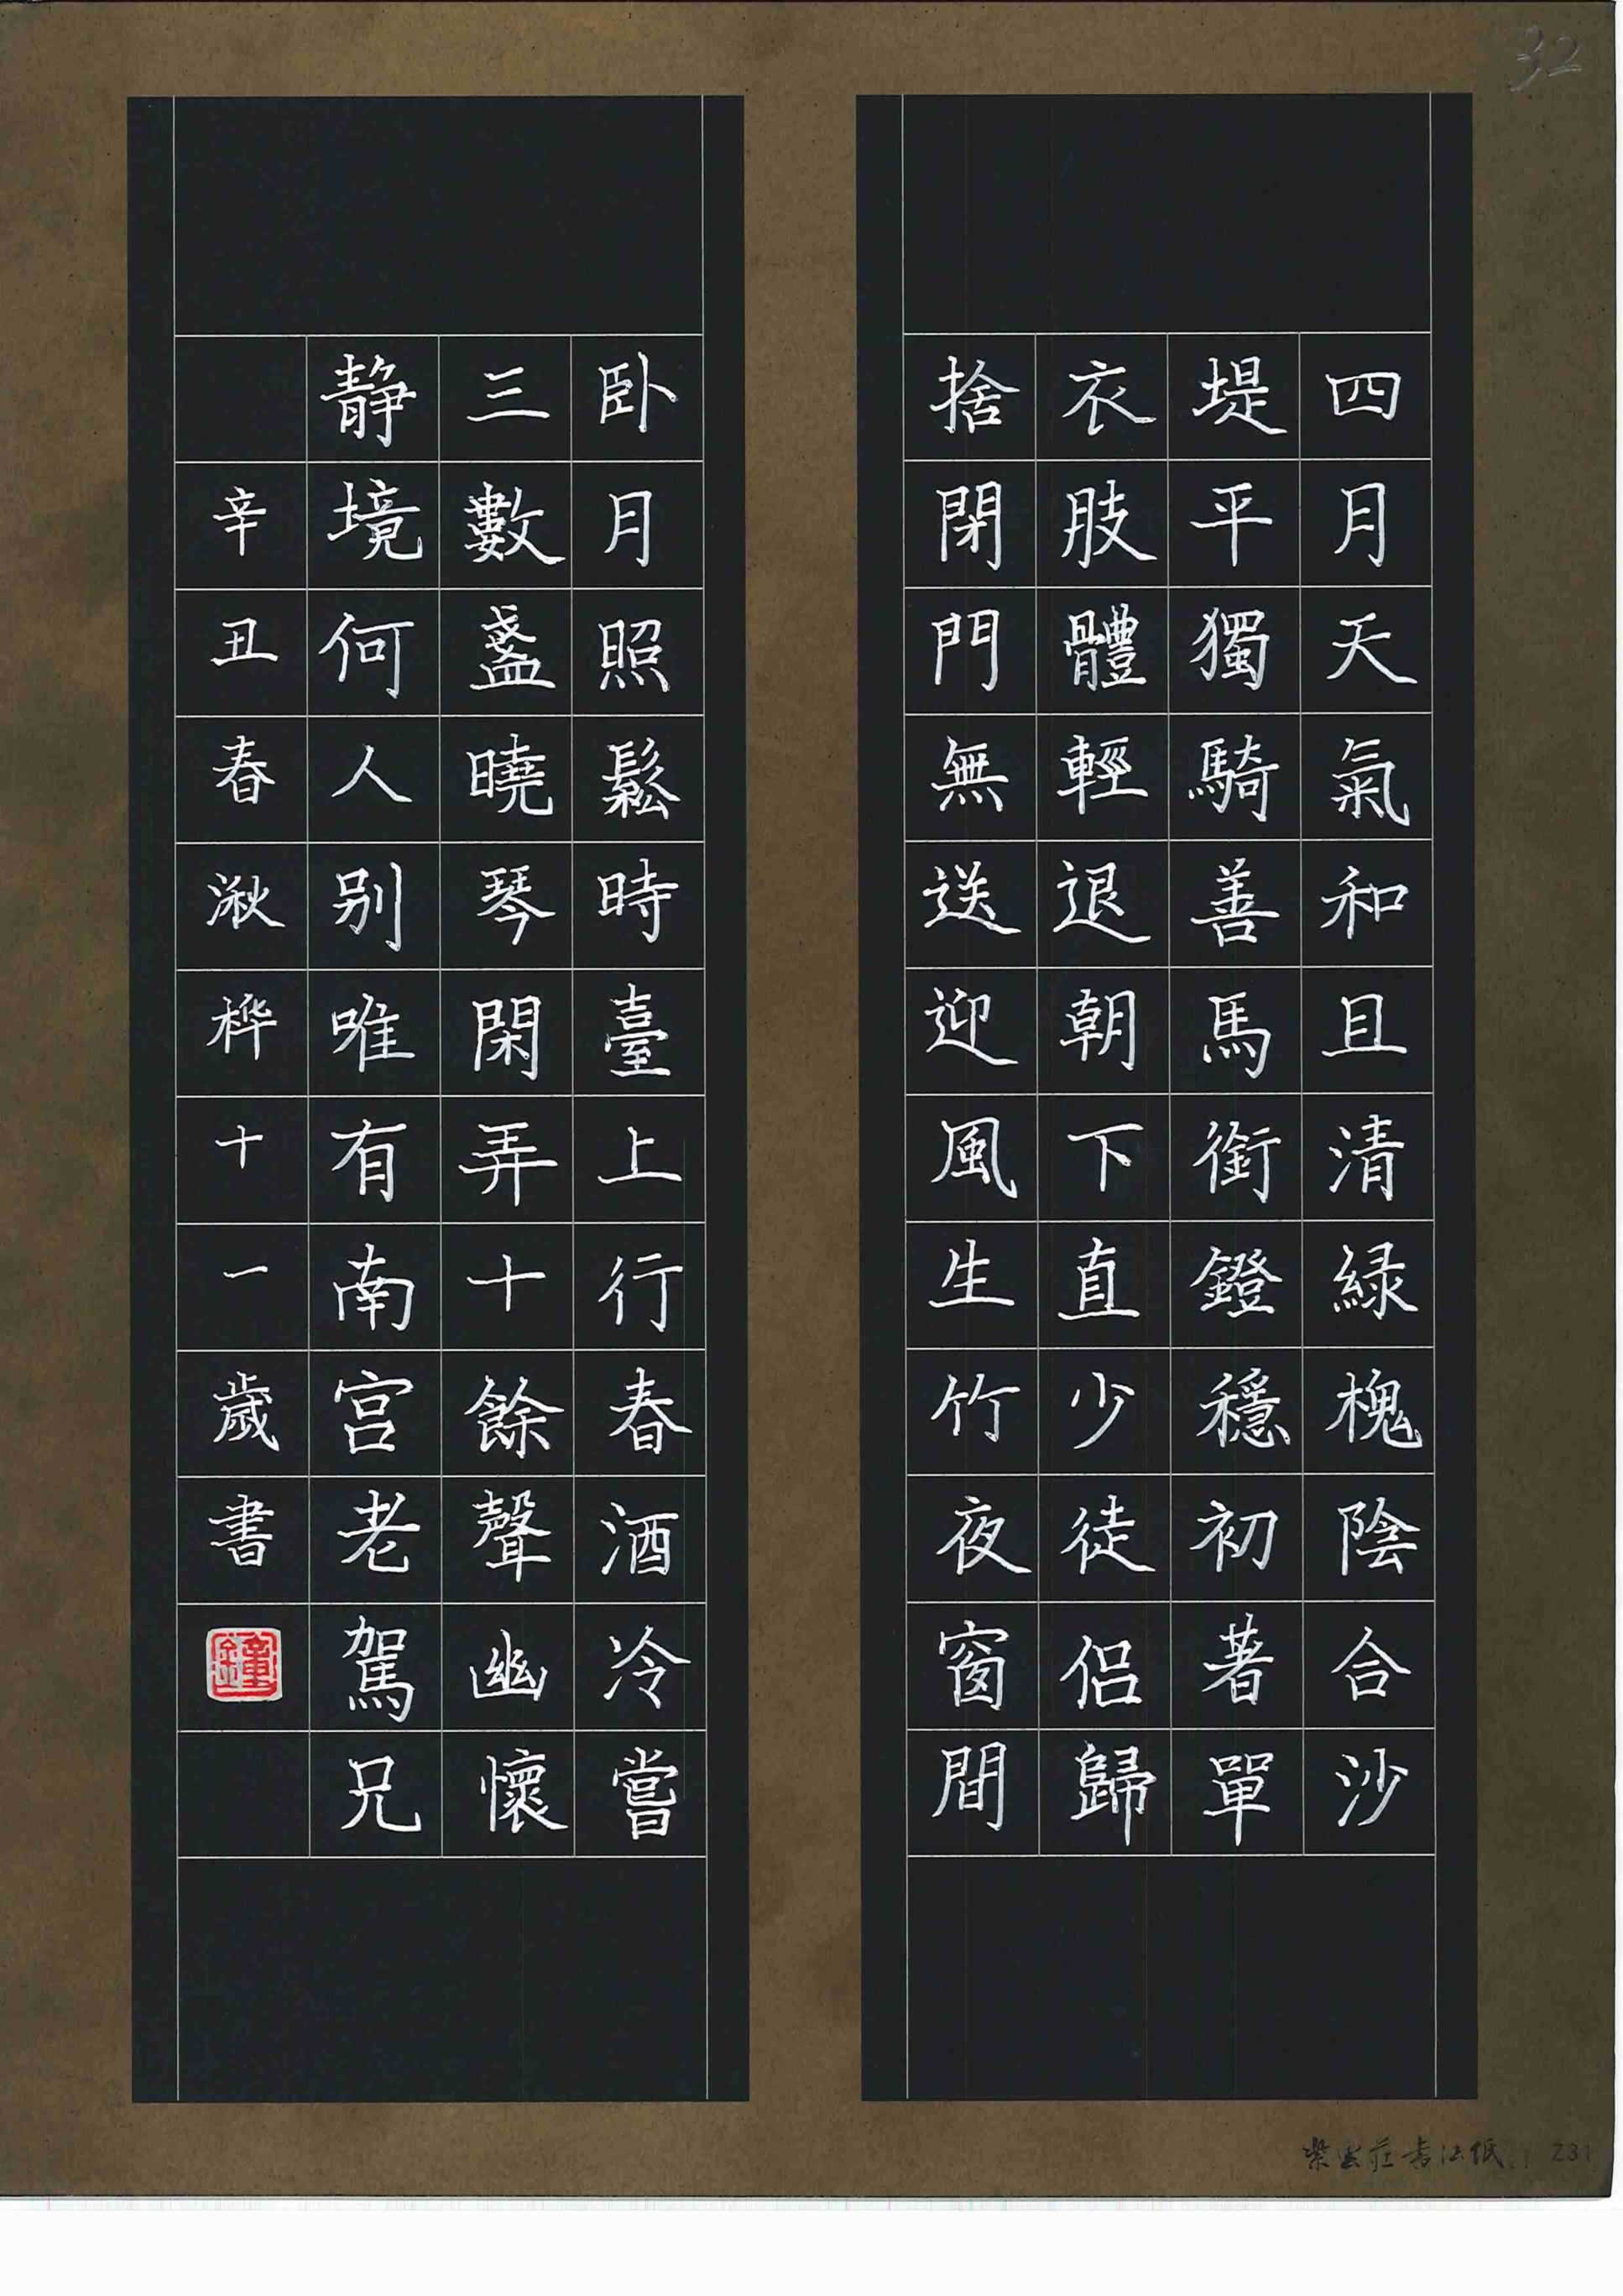 32
四月天氣和且清緑槐陰合沙
堤平獨騎善馬銜鐙穩初著單
衣肢體輕退朝下直少徒侶歸
捨閉門無送迎風生竹夜窗間
卧月照鬆時臺上行春酒冷嘗
三數盞曉琴閑弄十餘聲幽懷
静境何人别唯有南宫老駕兄
辛丑春湫桦十一歲書
鐘
紫雲莊書法紙
Z31